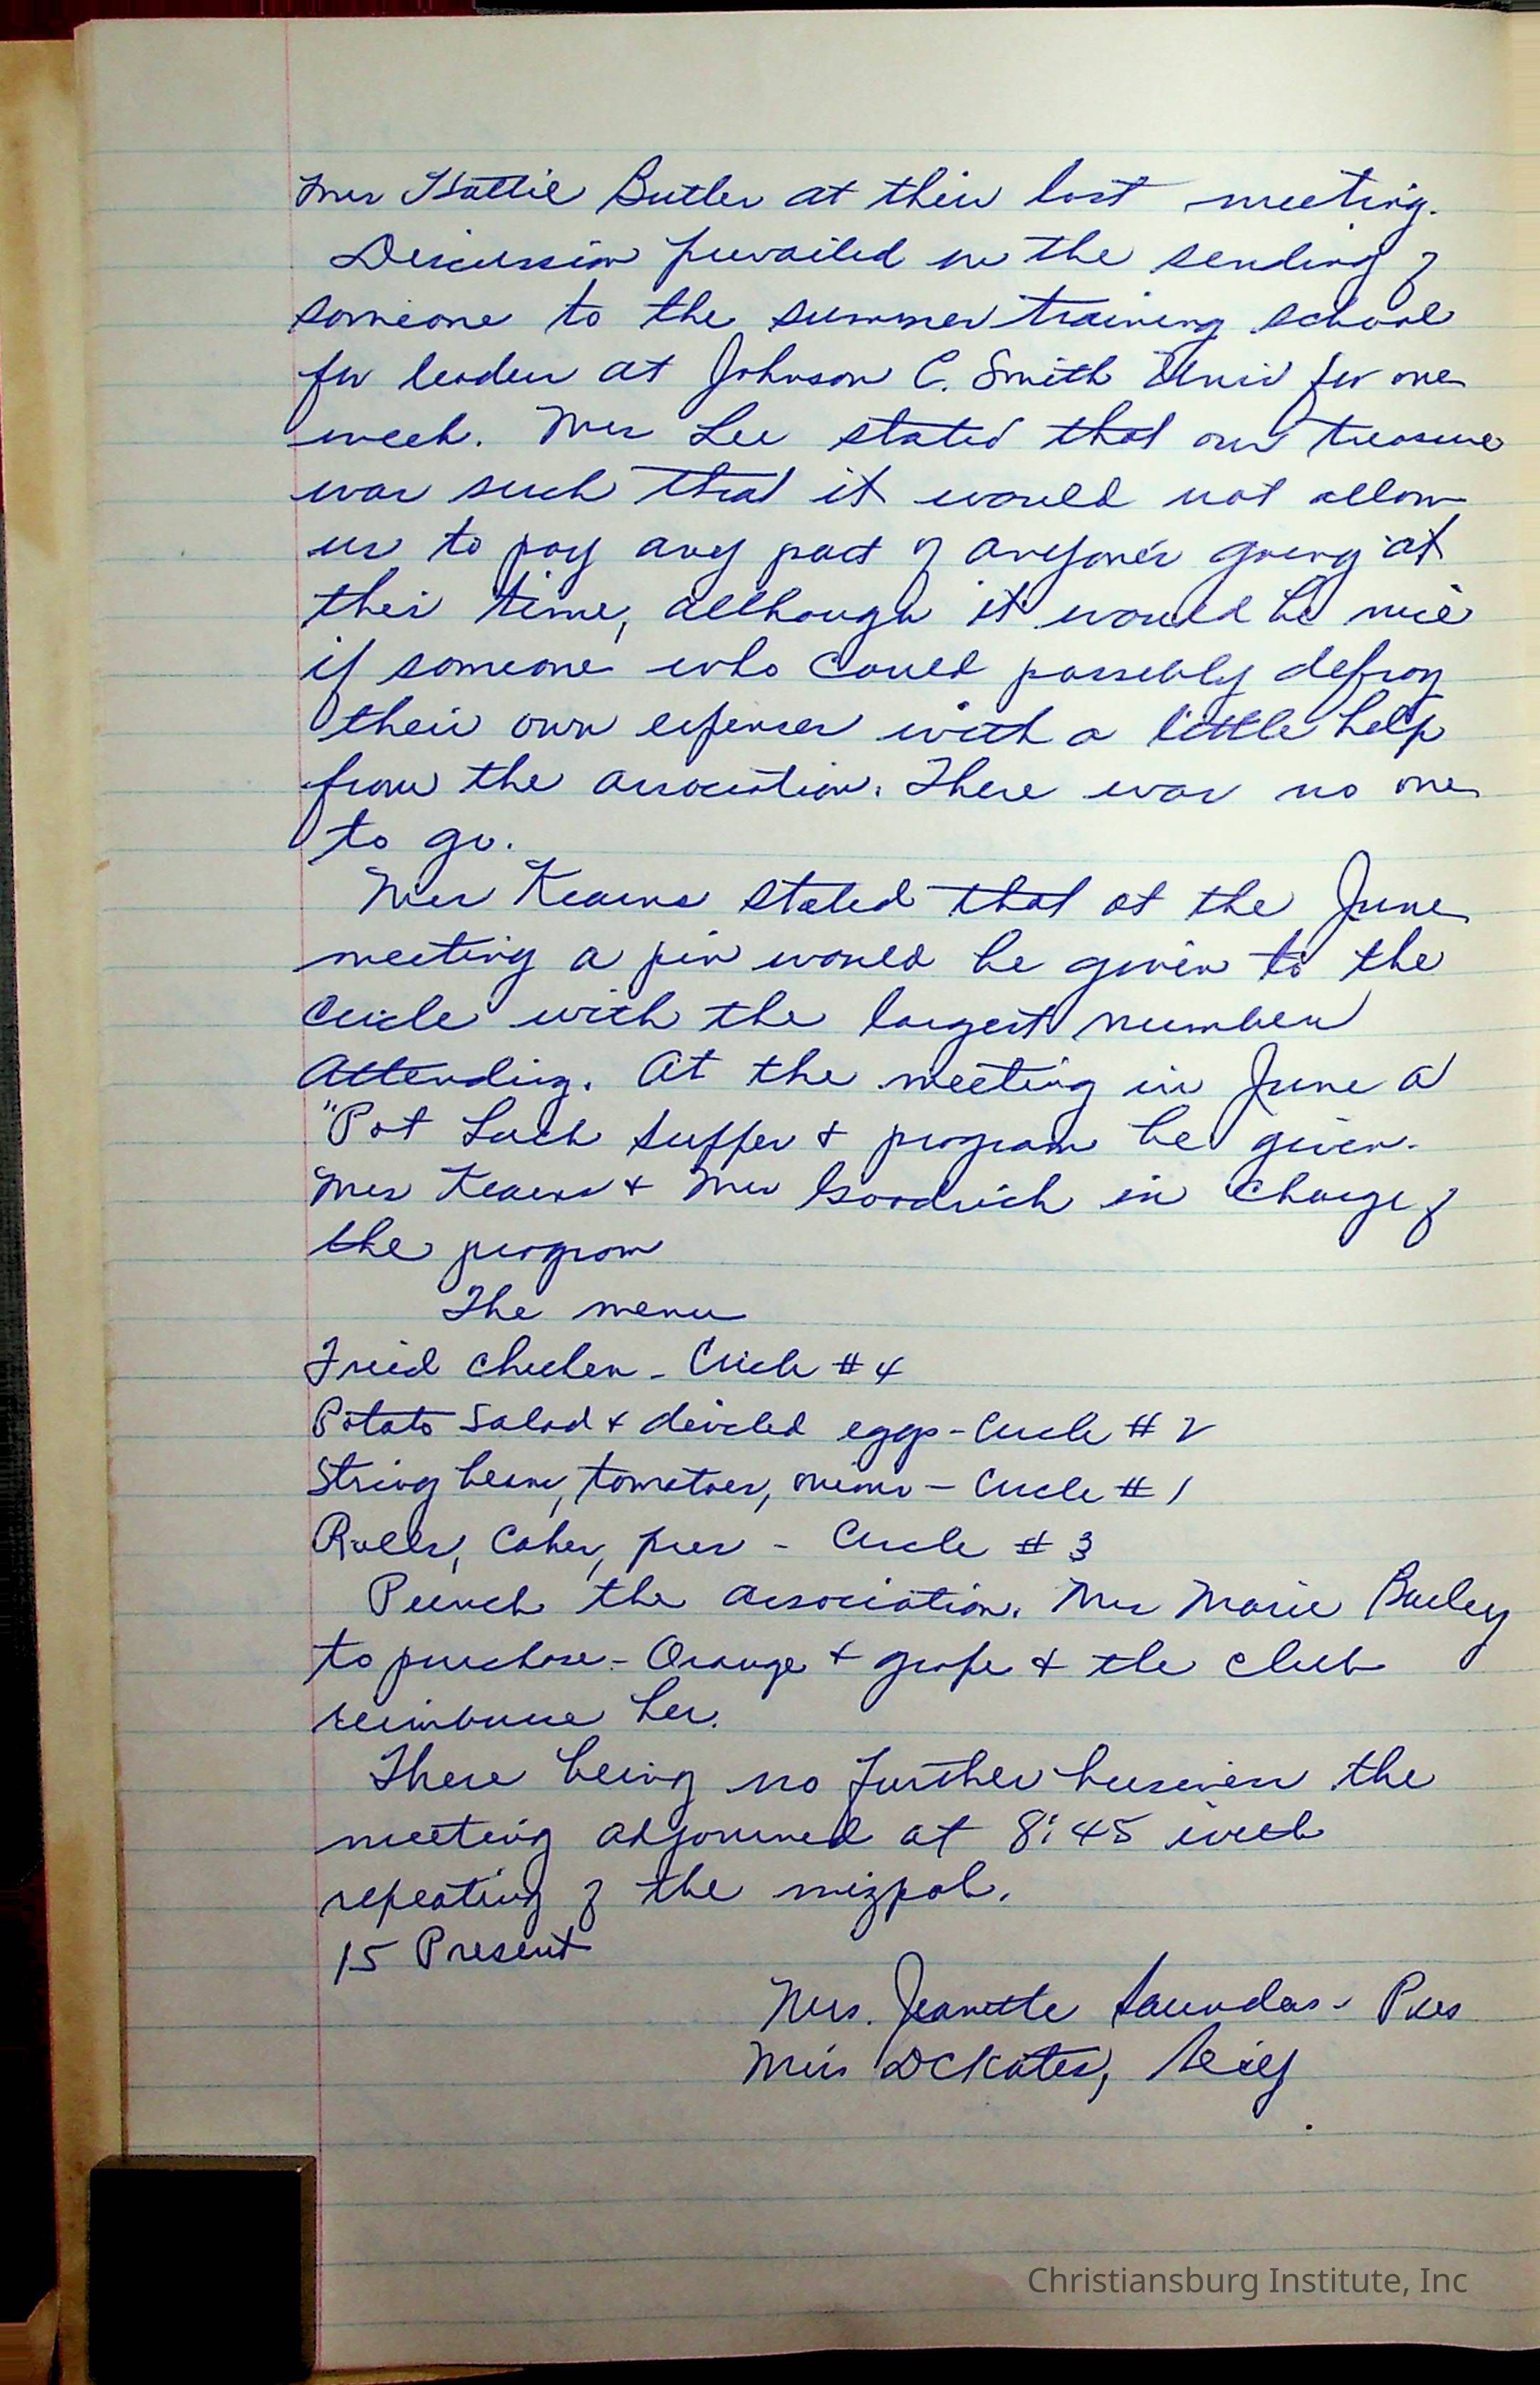 Mrs Hattie Butler at their last meeting.
Discussion prevailed on the sending of
someone to the summer training school
for leaders at Johnson C. Smith Univ for one
week. Mrs Lee stated that our treasure
was such that it would not allow
us to pay any part of anyone's going at
this time, although it would be nice
if someone who could possibly defray
their own expenses with a little help
from the association. There was no one
to go.
Mrs Kearns stated that at the June
meeting a pin would be given to the
Circle with the largest number
attending. At the meeting in June a
"Pot Luck supper & program be given.
Mrs Kearns & Mrs Goodrich in charge of
the program
The menu
Fried chicken - Circle #4
Potato salad & deviled eggs - Circle #2
String beans, tomatoes, onions - Circle #1
Rolls, Cakes, pies - Circle #3
Punch the association. Mrs Marie Bailey
to purchase - Orange & grape & the club
reimburse her.
There being no further business the
meeting adjourned at 8:45 with
repeating of the mizpah.
15 Present
Mrs. Jeanette Saunders - Pres
Miss D C Kates, Secy
Christiansburg Institute, Inc